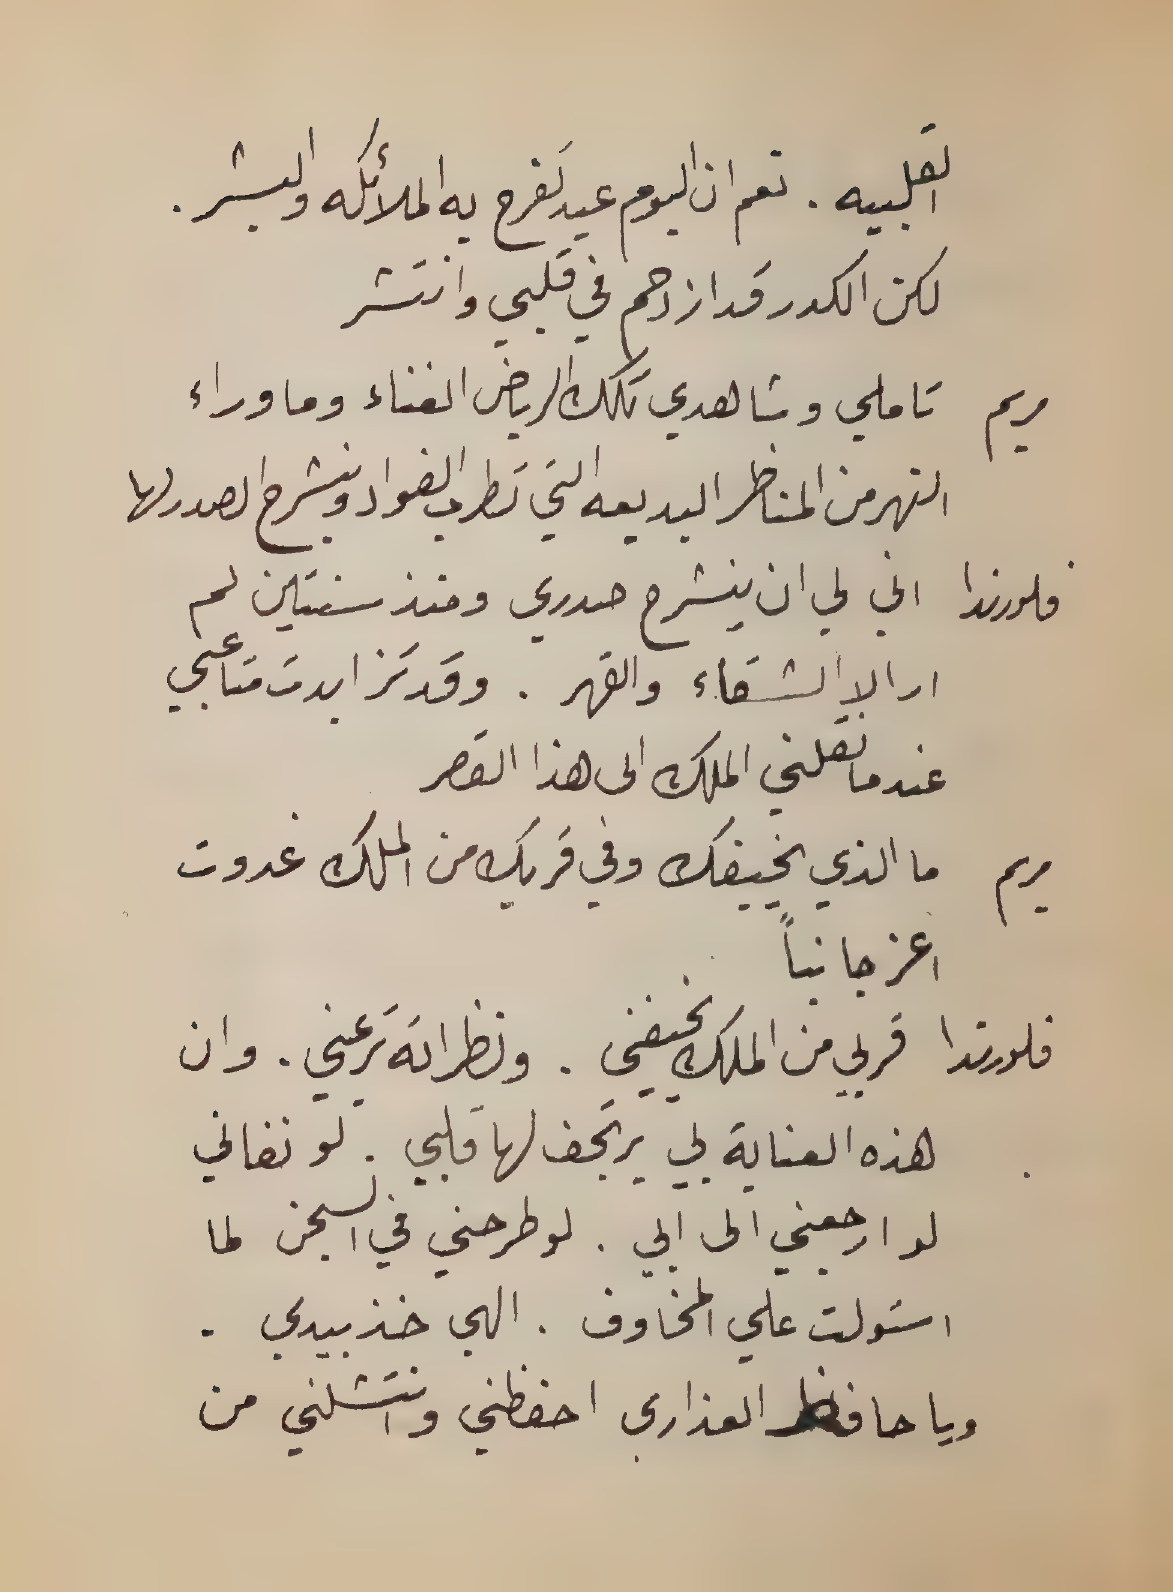 القلبيه . نعم ان اليوم عيد تفرح به الملائكه والبشر .
لكن الكدر قد ازدحم في قلبي وانتشر
مريم تاملي وشاهدي تلك الرياض الغناء وما وراء
النهر من المناظر البديعه التي تطرب الفواد وينشرح الصدر لها
فلورندا انى لي ان ينشرح صدري ومنذ سنتين لم
ار الا الشقاء والقهر . وقد تزايدت متاعبي
عندما نقلني الملك الى هذا القصر
مريم ما الذي يخيفك وفي قربك من الملك غدوت
اعز جانباً
فلورندا قربي من الملك يخيفني . ونظراته ترعبني . وان
هذه العناية بي يرتجف لها قلبي . لو نفاني
لو ارجعني الى ابي . لو طرحني في السجن لما
استولت علي المخاوف . الهي خذ بيدي .
ويا حافظ العذارى احفظني وانتشلني من